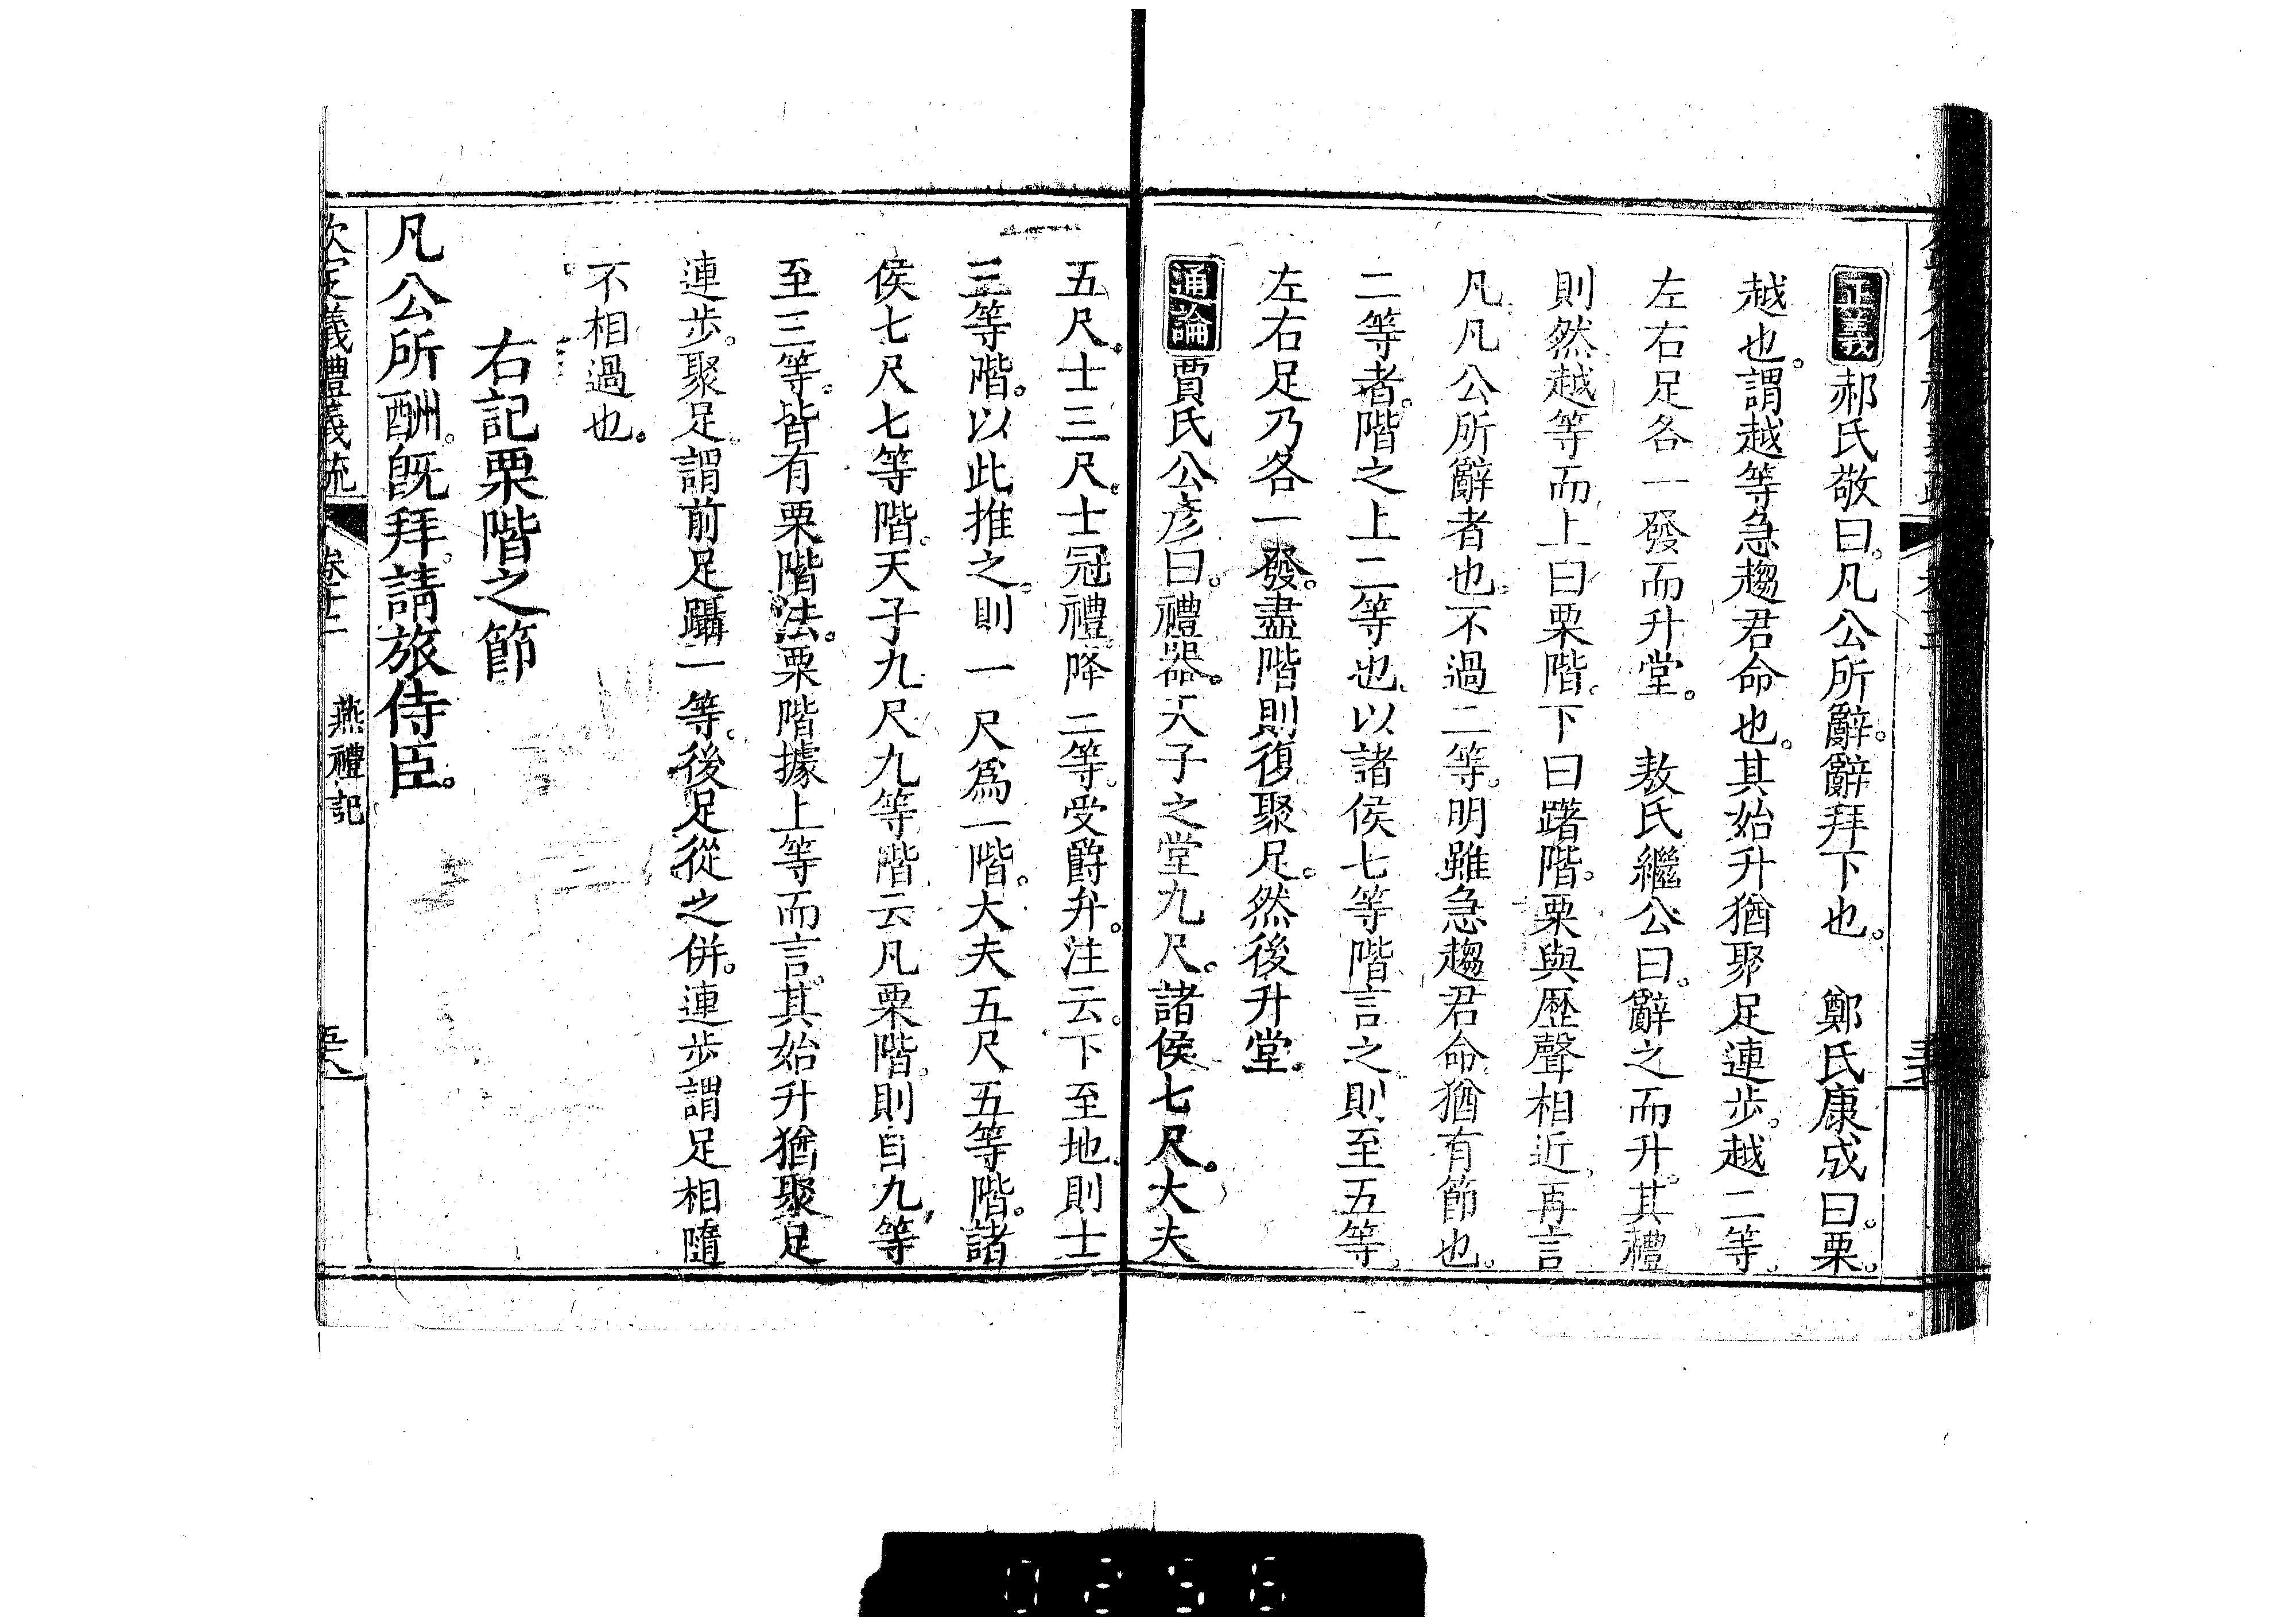 正義郝氏敬曰。凡公所辭。辭拜下也。　鄭氏康成曰。栗。
越也。謂越等急趨君命也。其始升猶聚足連步。越二等。
左右足各一發而升堂。　敖氏繼公曰。辭之而升。其禮
則然越等而上曰栗階。下曰躇階。栗與歷聲相近再言
凡凡公所辭者也。不過二等。明雖急趨君命猶有節也。
二等者。階之上二等也。以諸侯七等階言之。則至五等。
左右足乃各一發。盡階則復聚足。然後升堂。
通論賈氏公彥曰。禮器。天子之堂九尺。諸侯七尺。大夫
五尺。士三尺。士冠禮。降二等。受爵弁。注云。下至地則士
三等階。以此推之。則一尺爲一階。大夫五尺五等階。諸
侯七尺七等階。天子九尺九等階云凡栗階。則自九等
至三等。皆有栗階法。栗階據上等而言。其始升猶聚足
連步。聚足。謂前足躡一等。後足從之併。連步謂足相隨
不相過也。
右記栗階之節
凡公所酬。旣拜。請旅侍臣。
欽定義禮義疏　卷十二　燕禮記